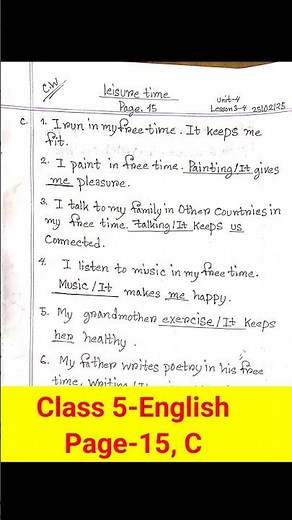 C.W
leisure time
Page. 15
Unit-4
Lesson 3-4 25/02/25
C. 1. I run in my free time. It keeps me
fit.
2. I paint in free time. Painting/It gives
me pleasure.
3. I talk to my family in Other Countries in
my free time. talking/It keeps us
Connected.
4. I listen to music in my free time.
Music/It makes me happy.
5. My grandmother exercise/It keeps
her healthy.
6. My father writes poetry in his free
time. Writing
Class 5-English
Page-15, C